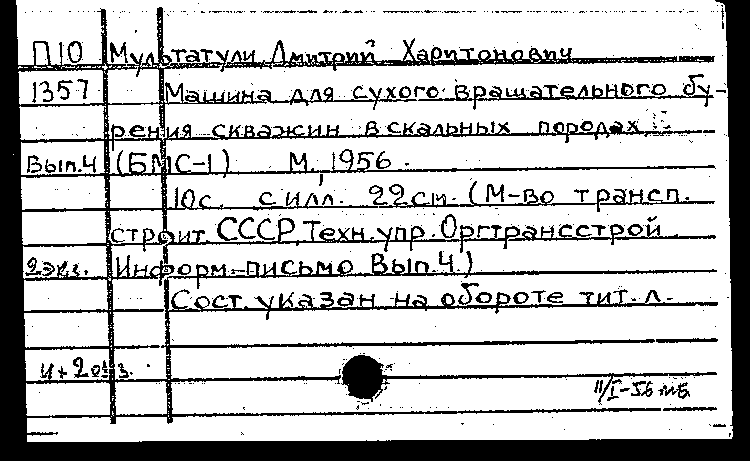 П10 Мультатули, Дмитрий Харитонович
1357 Машина для сухого вращательного бу-
рения скважин в скальных породах
Вып.4 (БМС-1) М., 1956.
10с. с илл. 22см. (М-во трансп.
строит СССР, Техн. упр. Оргтрансстрой.
2экз. Информ.-письмо Вып.4.)
Сост. указан на обороте тит. л.
11/I-56